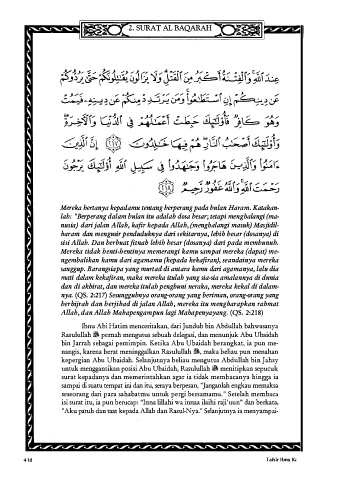 2. SURAT AL BAQARAH
عِندَ اللَّهِ وَالْفِتْنَةُ أَكْبَرُ مِنَ الْقَتْلِ وَلَا يَزَالُونَ يُقَاتِلُونَكُمْ حَتَّىٰ يَرُدُّوكُمْ
عَن دِينِكُمْ إِنِ اسْتَطَاعُوا وَمَن يَرْتَدِدْ مِنكُمْ عَن دِينِهِ فَيَمُتْ
وَهُوَ كَافِرٌ فَأُولَٰئِكَ حَبِطَتْ أَعْمَالُهُمْ فِي الدُّنْيَا وَالْآخِرَةِ
وَأُولَٰئِكَ أَصْحَابُ النَّارِ هُمْ فِيهَا خَالِدُونَ ٢١٧ إِنَّ الَّذِينَ
ءَامَنُوا وَالَّذِينَ هَاجَرُوا وَجَاهَدُوا فِي سَبِيلِ اللَّهِ أُولَٰئِكَ يَرْجُونَ
رَحْمَتَ اللَّهِ وَاللَّهُ غَفُورٌ رَّحِيمٌ ٢١٨
Mereka bertanya kepadamu tentang berperang pada bulan Haram. Katakan-
lah: "Berperang dalam bulan itu adalah dosa besar; tetapi menghalangi (ma-
nusia) dari jalan Allah, kafir kepada Allah, (menghalangi masuk) Masjidil-
haram dan mengusir penduduknya dari sekitarnya, lebih besar (dosanya) di
sisi Allah. Dan berbuat fitnah lebih besar (dosanya) dari pada membunuh.
Mereka tidak henti-hentinya memerangi kamu sampai mereka (dapat) me-
ngembalikan kamu dari agamamu (kepada kekafiran), seandainya mereka
sanggup. Barangsiapa yang murtad di antara kamu dari agamanya, lalu dia
mati dalam kekafiran, maka mereka itulah yang sia-sia amalannya di dunia
dan di akhirat, dan mereka itulah penghuni neraka, mereka kekal di dalam-
nya. (QS. 2:217) Sesungguhnya orang-orang yang beriman, orang-orang yang
berhijrah dan berjihad di jalan Allah, mereka itu mengharapkan rahmat
Allah, dan Allah Mahapengampun lagi Mahapenyayang. (QS. 2:218)
Ibnu Abi Hatim menceritakan, dari Jundub bin Abdullah bahwasanya
Rasulullah ﷺ pernah mengutus sebuah delegasi, dan menunjuk Abu Ubaidah
bin Jarrah sebagai pemimpin. Ketika Abu Ubaidah berangkat, ia pun me-
nangis, karena berat meninggalkan Rasulullah ﷺ, maka beliau pun menahan
kepergian Abu Ubaidah. Selanjutnya beliau mengutus Abdullah bin Jahsy
untuk menggantikan posisi Abu Ubaidah, Rasulullah ﷺ menitipkan sepucuk
surat kepadanya dan memerintahkan agar ia tidak membacanya hingga ia
sampai di suatu tempat ini dan itu, seraya berpesan, "Janganlah engkau memaksa
seseorang dari para sahabatmu untuk pergi bersamamu." Setelah membaca
isi surat itu, ia pun berucap: "Inna lillahi wa innaa ilaihi raji'uun" dan berkata,
"Aku patuh dan taat kepada Allah dan Rasul-Nya." Selanjutnya ia menyampai-
418
Tafsir Ibnu Ka